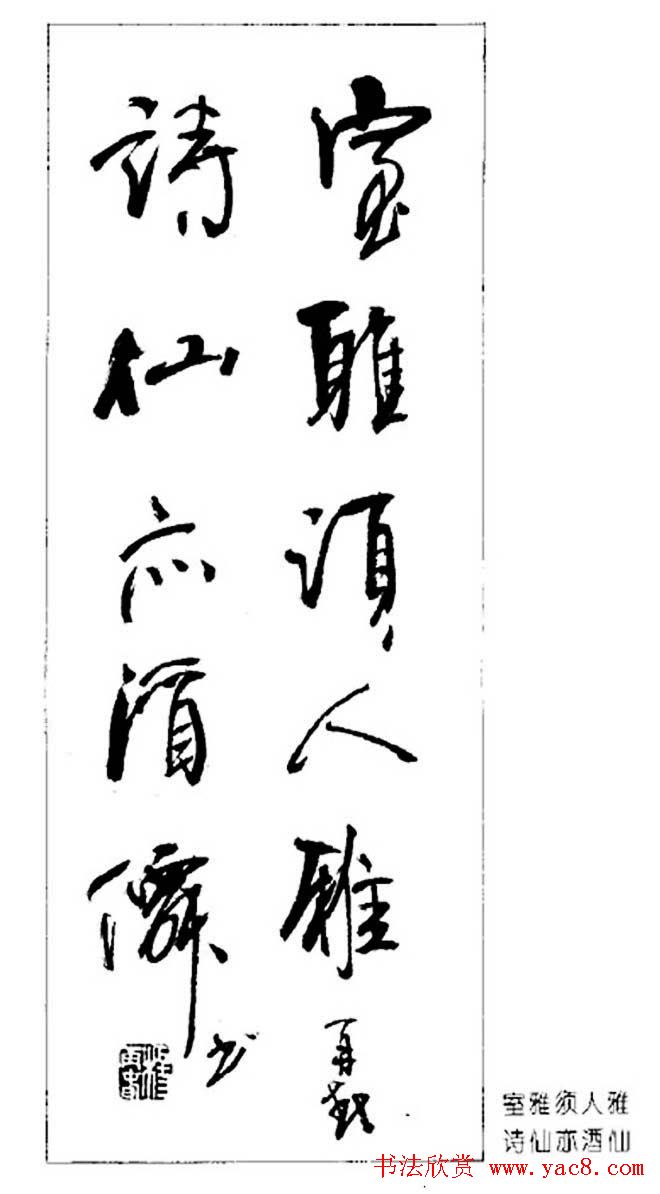 室雅須人雅
詩仙亦酒僊
书
室雅须人雅
诗仙亦酒仙
书法欣赏 www.yac8.com